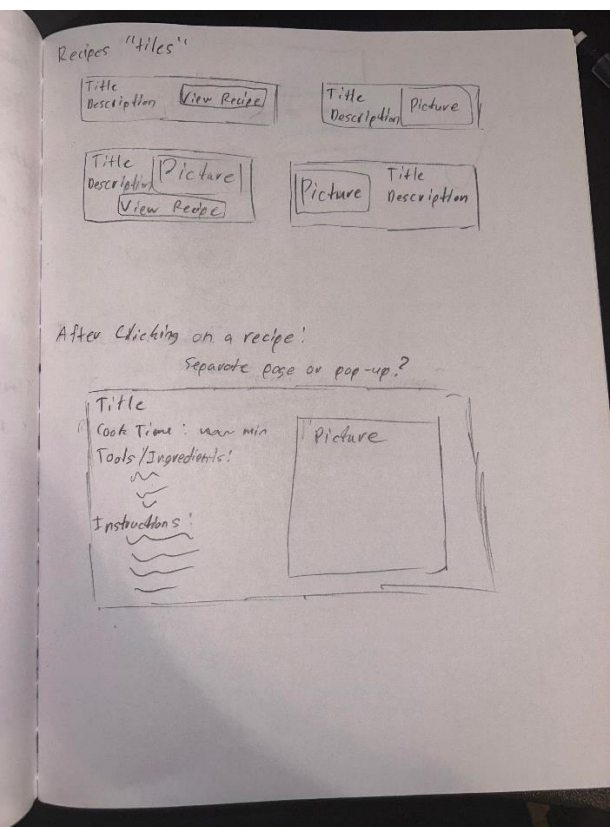 Recipes "tiles"
Title
Description View Recipe
Title
Description Picture
Title
Description Picture
View Recipe
Picture Title
Description
After Clicking on a recipe:
Separate page or pop-up?
Title
Cook Time: min
Picture
Tools/Ingredients:
Instructions: